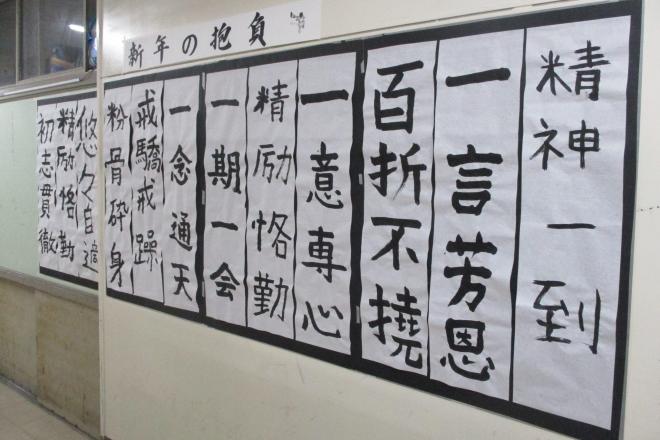 新年の抱負
精神一到
一言芳恩
百折不撓
一意専心
精励恪勤
一期一会
一念通天
戒驕戒躁
粉骨砕身
悠々自適
精励恪勤
初志貫徹